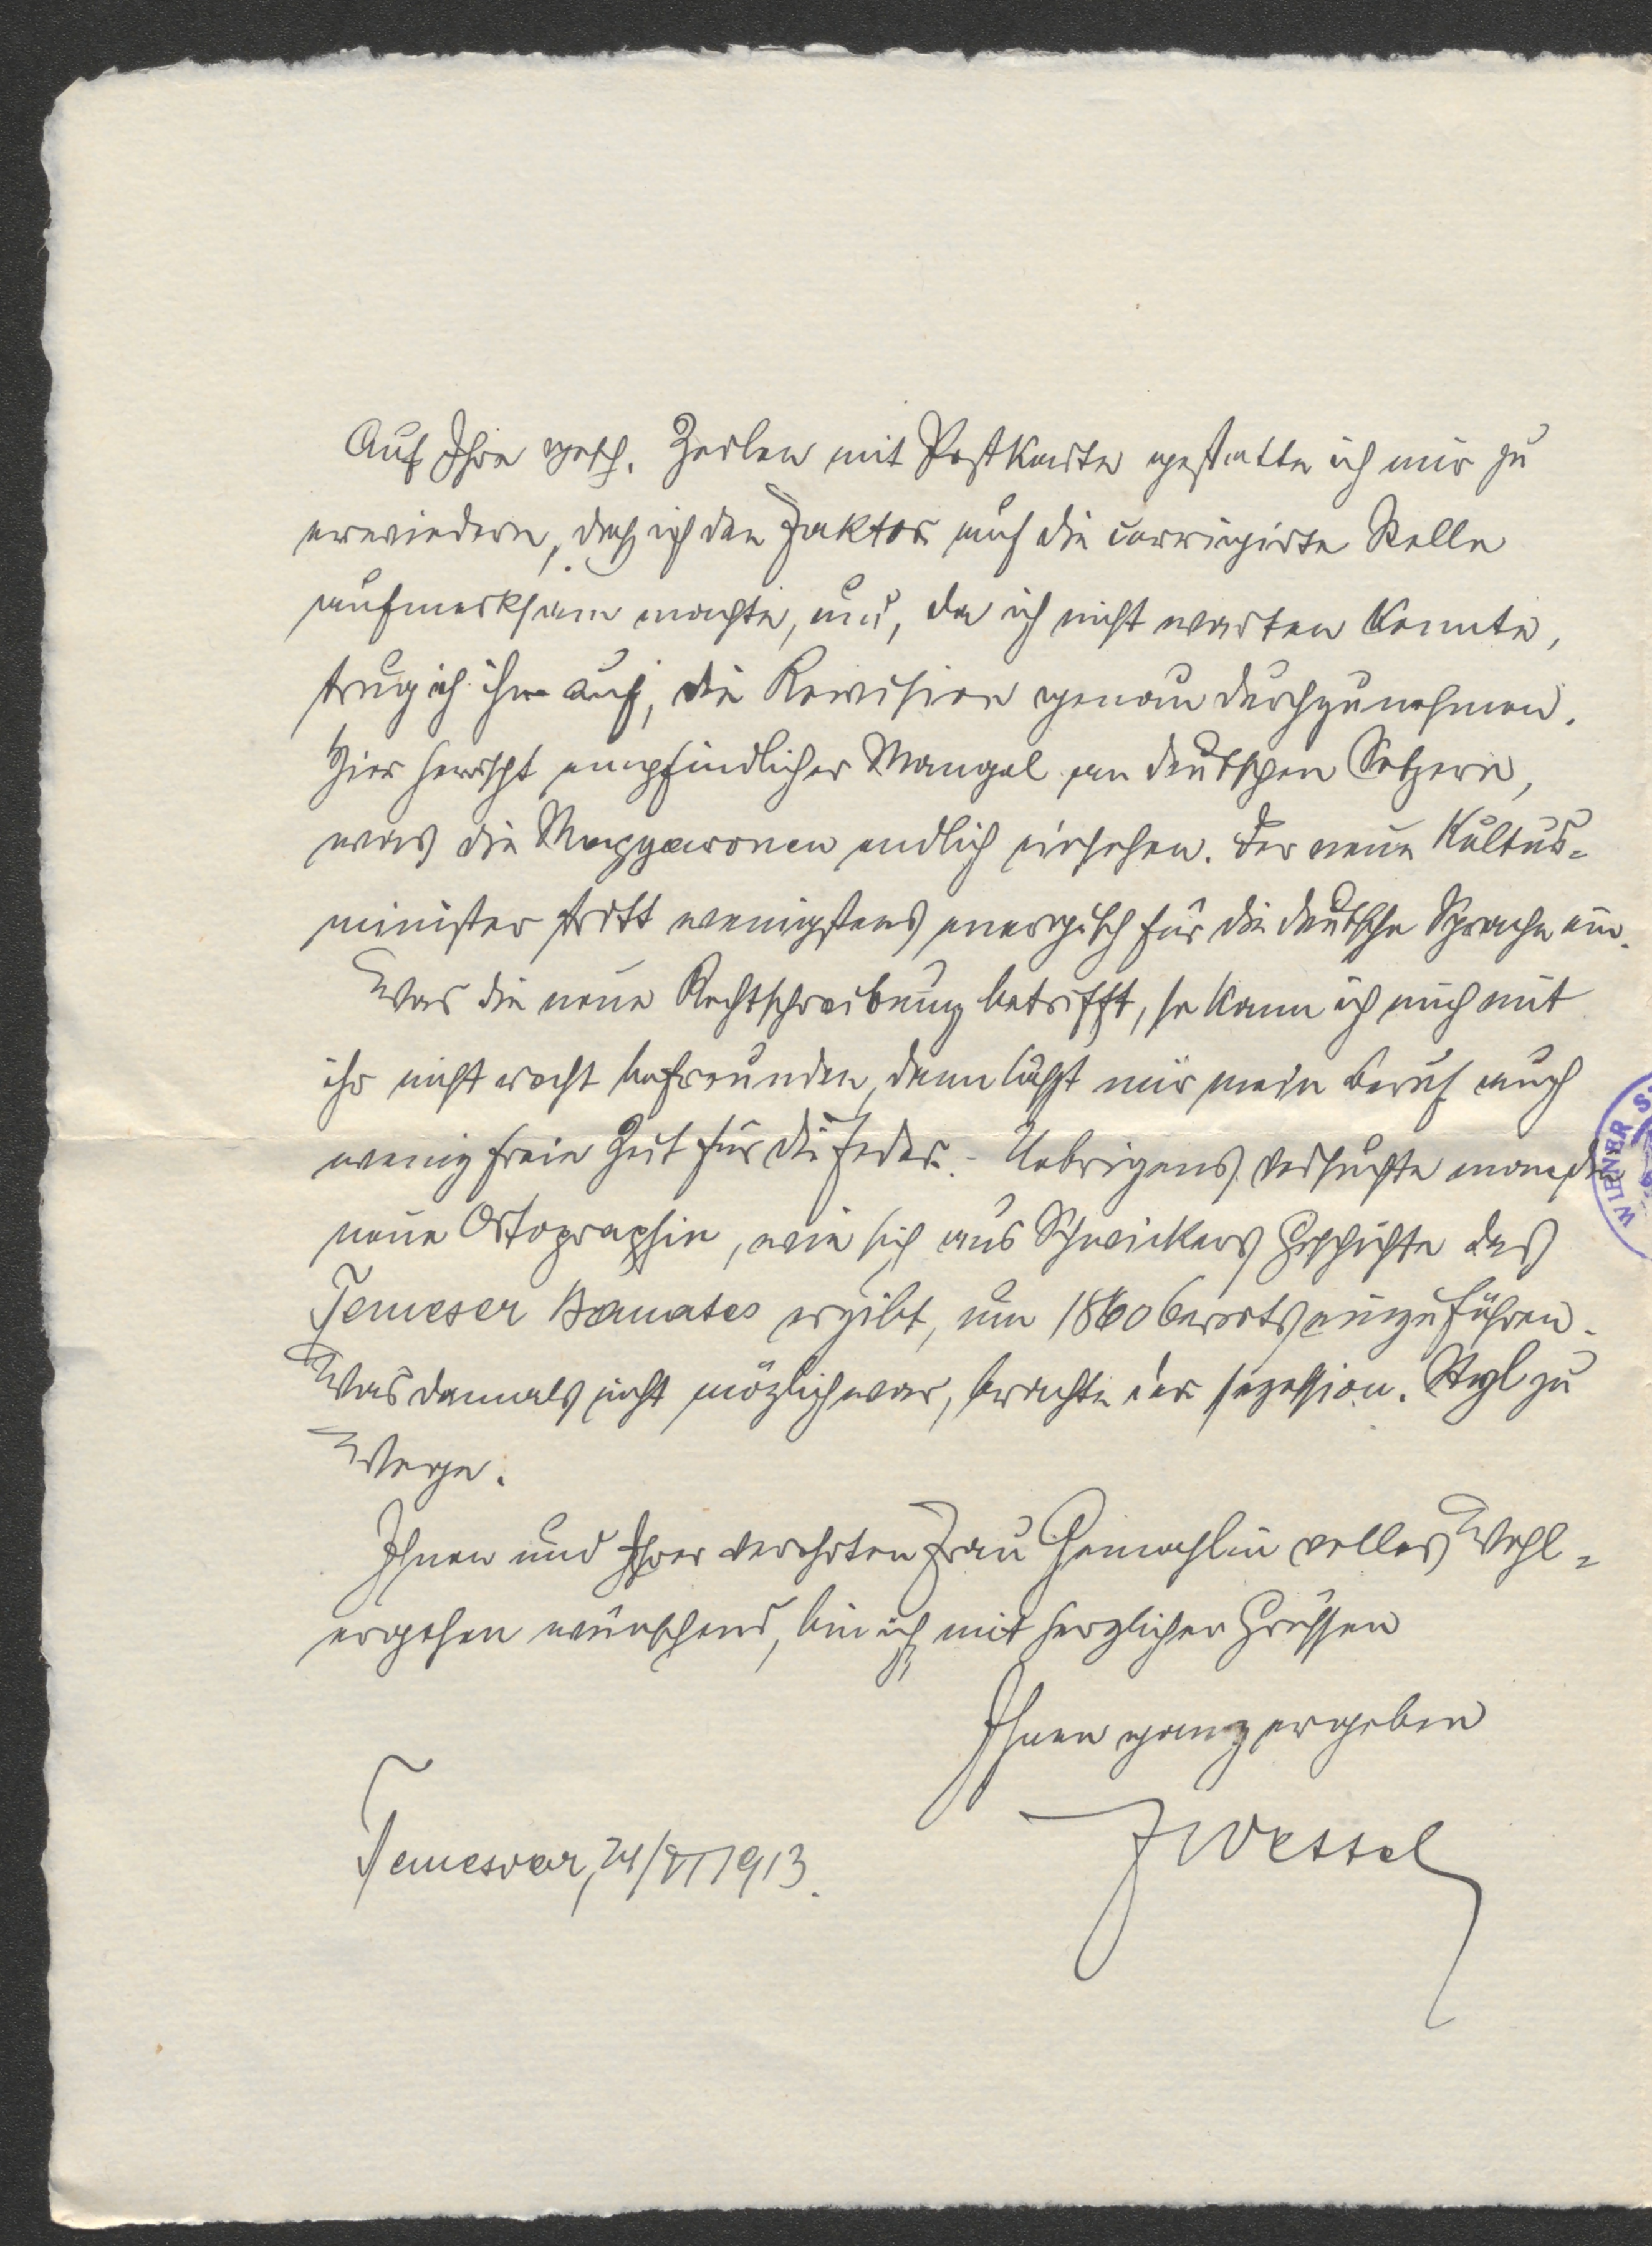 Auf Ihre gesch. Zeilen mit Postkarte gestatte ich mir zu
erwiedern, daß ich den Faktor auf die corrigirte Stelle
aufmerksam machte, und, da ich nicht warten konnte,
trug ich ihm auf, die Revision genau durchzunehmen.
Hier herrscht empfindlicher Mangel an deutschen Setzern,
was die Magyaronen endlich einsehen. Der neue Kultus-
minister tritt wenigstens energisch für die deutsche Sprache ein.
Was die neue Rechtschreibung betrifft, so kann ich mich mit
ihr nicht recht befreunden, denn läßt mir mein Beruf auch
wenig freie Zeit für die Feder. - Uebrigens versuchte man die
neue Ortographie, wie sich aus Schwickers Geschichte des
Temeser Banates ergibt, um 1860 einzuführen.
Was damals nicht möglich war, brachte der sezession. Styl zu
Wege.
Ihnen und Ihrer verehrten Frau Gemahlin volles Wohl-
ergehen wünschend, bin ich mit herzlichen Grüssen
Ihnen ganz ergeben
Temesvar, 24/ 1913.
JWettel
WIENER S